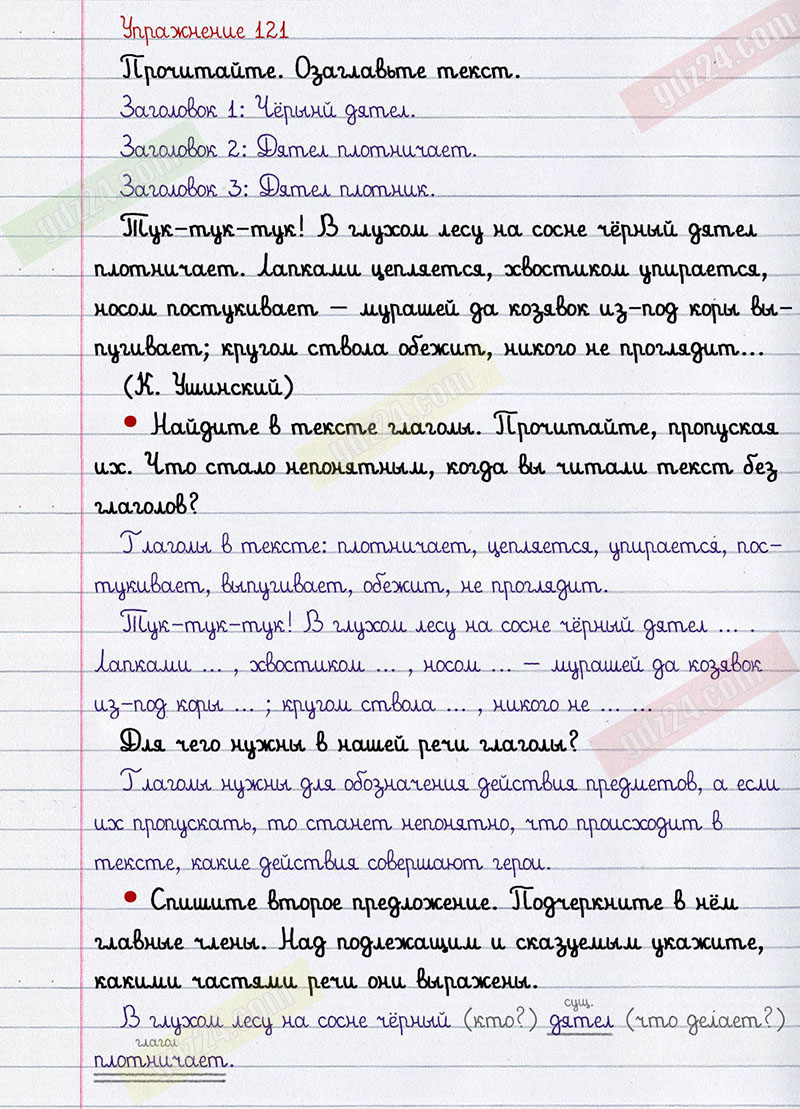 Упражнение 121
Прочитайте. Озаглавьте текст.
Заголовок 1: Чёрынй дятел.
Заголовок 2: Дятел плотничает.
Заголовок 3: Дятел плотник.
Тук-тук-тук! В глухом лесу на сосне чёрный дятел
плотничает. Лапками цепляется, хвостиком упирается,
носом постукивает – мурашей да козявок из-под коры вы-
пугивает; кругом ствола обежит, никого не проглядит...
(К. Ушинский)
• Найдите в тексте глаголы. Прочитайте, пропуская
их. Что стало непонятным, когда вы читали текст без
глаголов?
Глаголы в тексте: плотничает, цепляется, упирается, пос-
тукивает, выпугивает, обежит, не проглядит.
Тук-тук-тук! В глухом лесу на сосне чёрный дятел ... .
Лапками ... , хвостиком ... , носом ... – мурашей да козявок
из-под коры ... ; кругом ствола ... , никого не ... ...
Для чего нужны в нашей речи глаголы?
Глаголы нужны для обозначения действия предметов, а если
их пропускать, то станет непонятно, что происходит в
тексте, какие действия совершают герои.
• Спишите второе предложение. Подчеркните в нём
главные члены. Над подлежащим и сказуемым укажите,
какими частями речи они выражены.
сущ.
В глухом лесу на сосне чёрный (кто?) дятел (что делает?)
глагол
плотничает.
gdz24.com
gdz24.com
gdz24.com
gdz24.com
gdz24.com